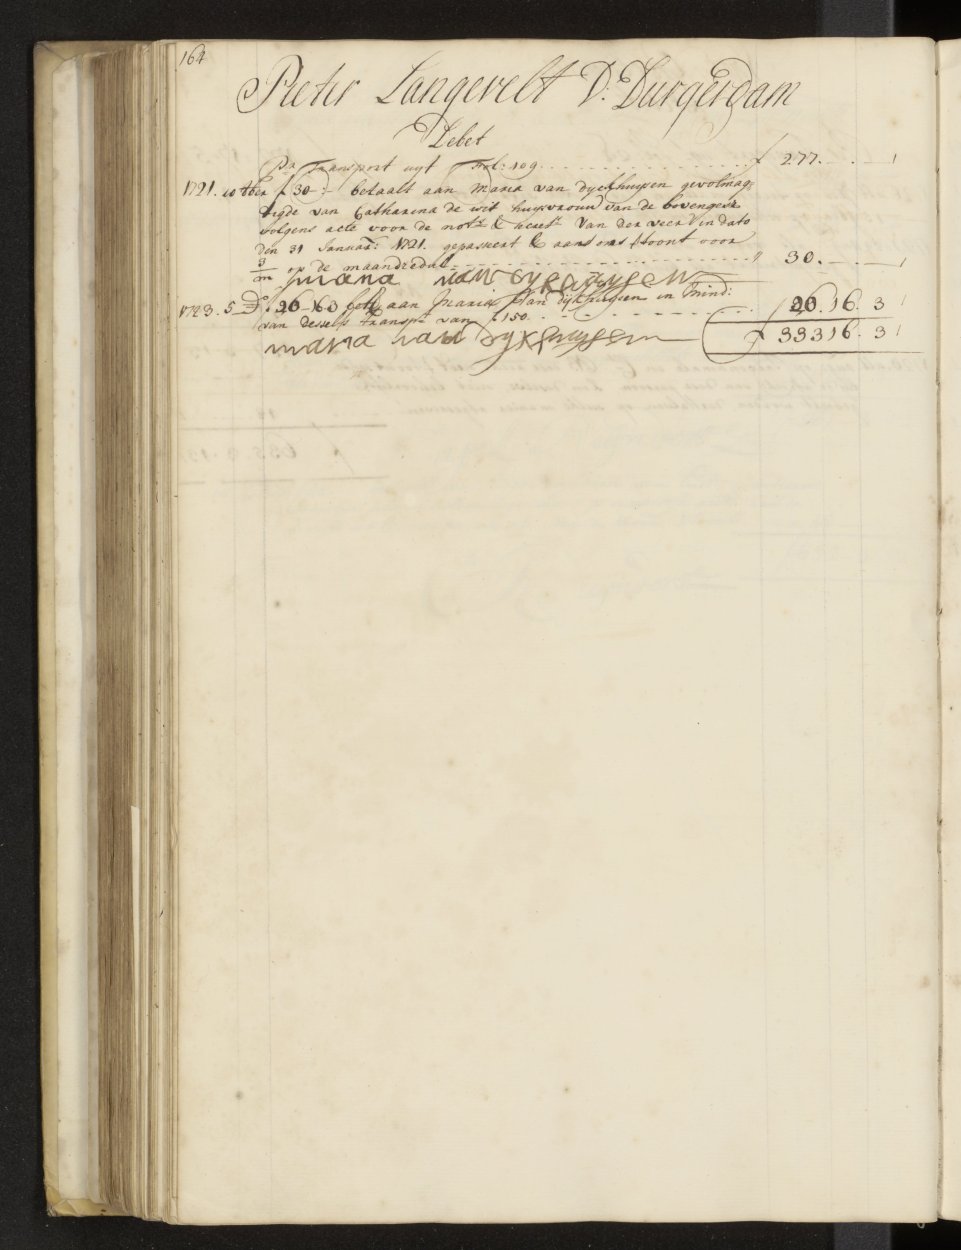 164
Pieter Langevelt V: Durgerdam
Debet
P.r Transport uyt Fol: 109 . . . f 277. - . -
1721. 10 8ber f 30:- betaalt aan Maria van dyckhuysen gevolmag=
tigde van Catharina de wit huysvrouw van de bovengest.
volgens acte voor de not.s Van der veer in dato
den 31 Januar: 1721. gepasseert & aan ons ttoont voor
3/m op de maandcedul . . . " 30. - . -
maria van dyckhuysen
1723. 5 D.o f 26-16-3 bet. aan Maria Van dijkhuysen in mind:
van desselfs transp.t van f 150 . . . 26. 16. 3
maria van dyckhuysen f 333 16. 3